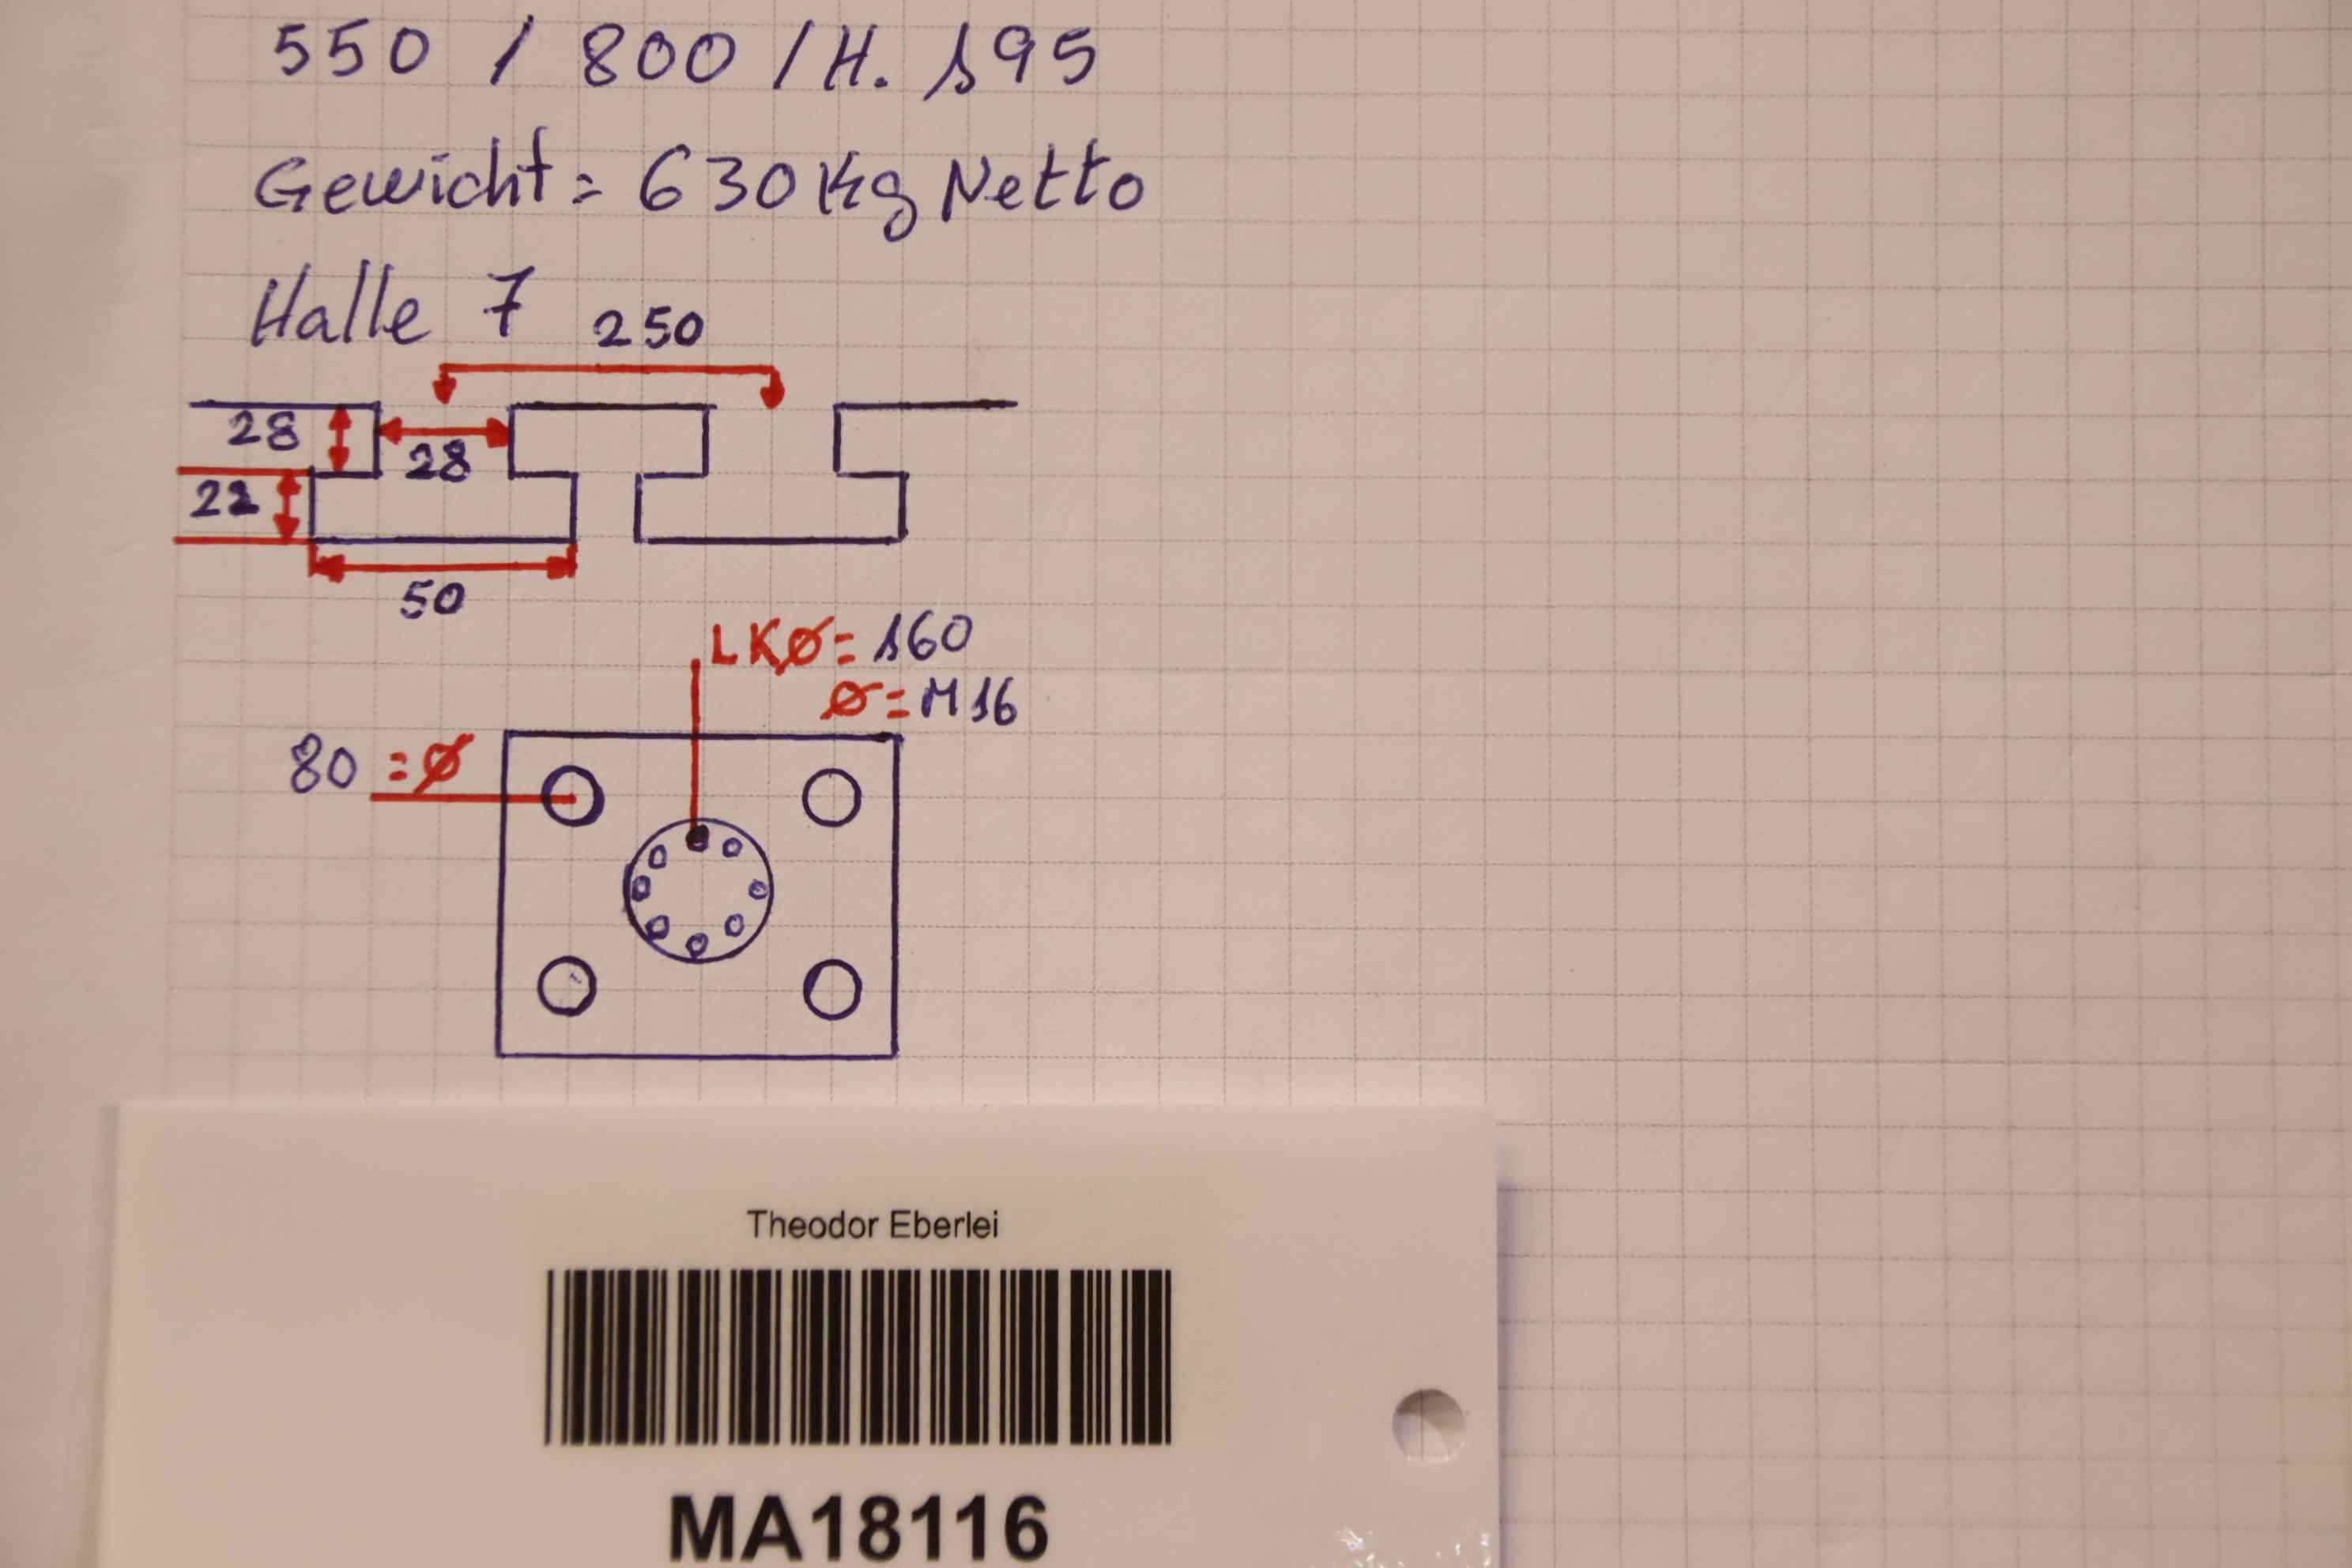 550 / 800 / H. 195
Gewicht = 630 Kg Netto
Halle 7
250
28
28
22
50
LKØ= 160
Ø= M16
80 = Ø
Theodor Eberlei
MA18116